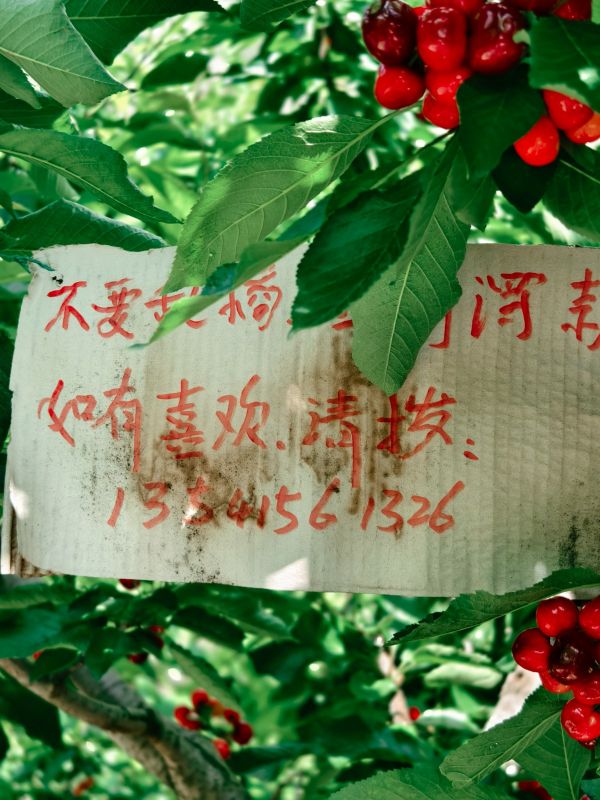 不要 摘 罚款
如有喜欢.请拨:
13541561326